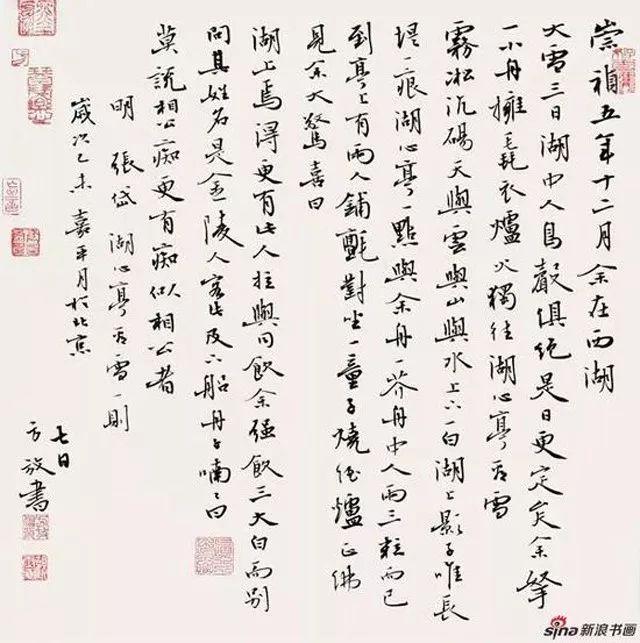 崇禎五年十二月余在西湖
大雪三日湖中人鳥聲俱絕是日更定矣余拏
一小舟擁毳衣爐火獨往湖心亭看雪
霧凇沆碭天與雲與山與水上下一白湖上影子唯長
堤一痕湖心亭一點與余舟一芥舟中人兩三粒而已
到亭上有兩人鋪氈對坐一童子燒酒爐正沸
見余大驚喜曰
湖上焉得更有此人拉與同飲余強飲三大白而別
問其姓名是金陵人客此及下船舟子喃〻曰
莫說相公痴更有痴似相公者
明 張岱 湖心亭看雪一則
歲次乙未嘉平月於北京
七日
方放書
sina新浪书画